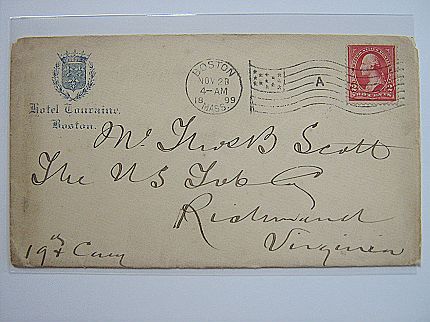 Hotel Touraine.
Boston.
BOSTON
NOV 20
4-AM
1899
MASS.
A
2 2
Mr Thos B Scott
The US Tob Co
Richmond
Virginia
19th &